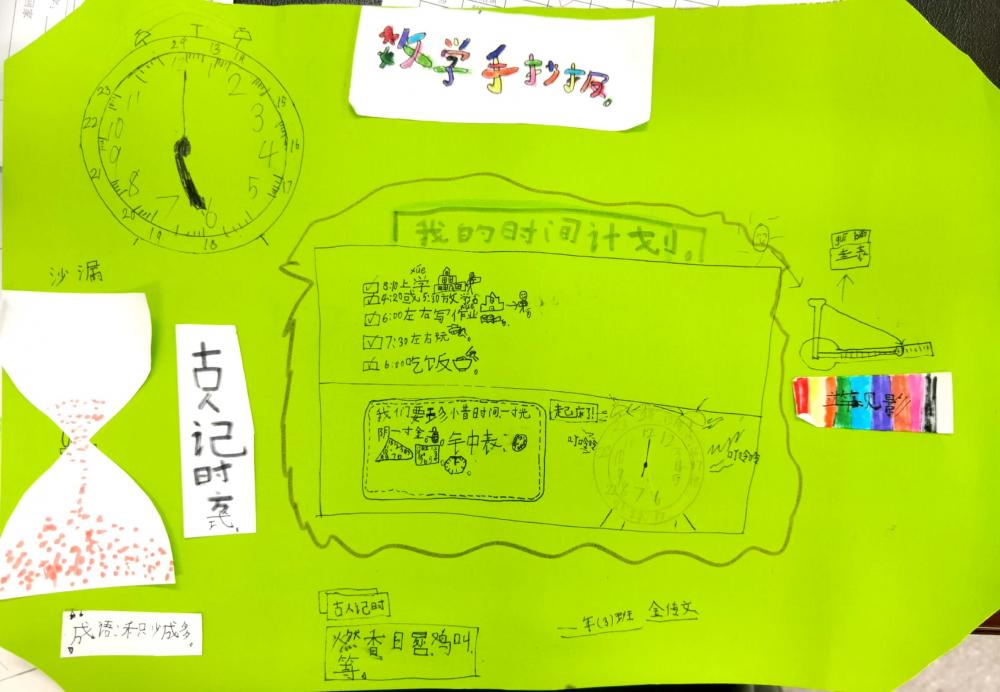 数学手抄报。
24 13
14
23 11 12 2 15
22 10 3
9 4 16
21 8 5 17
20 7 6
19 18
沙漏
古人记时方式。
成语:积沙成多
我的时间计划。
xué
8:10上学
4:20或5:30放学
6:00左右写作业。
7:30左右玩。
6:00吃饭
我们要多惜时间一寸光
阴一寸金。
年中表。
起床了!
叮铃铃
叮铃铃
guī biǎo
圭表
立竿见影
古人记时
燃香目晷鸡叫
等。
一年(3)班 金传文